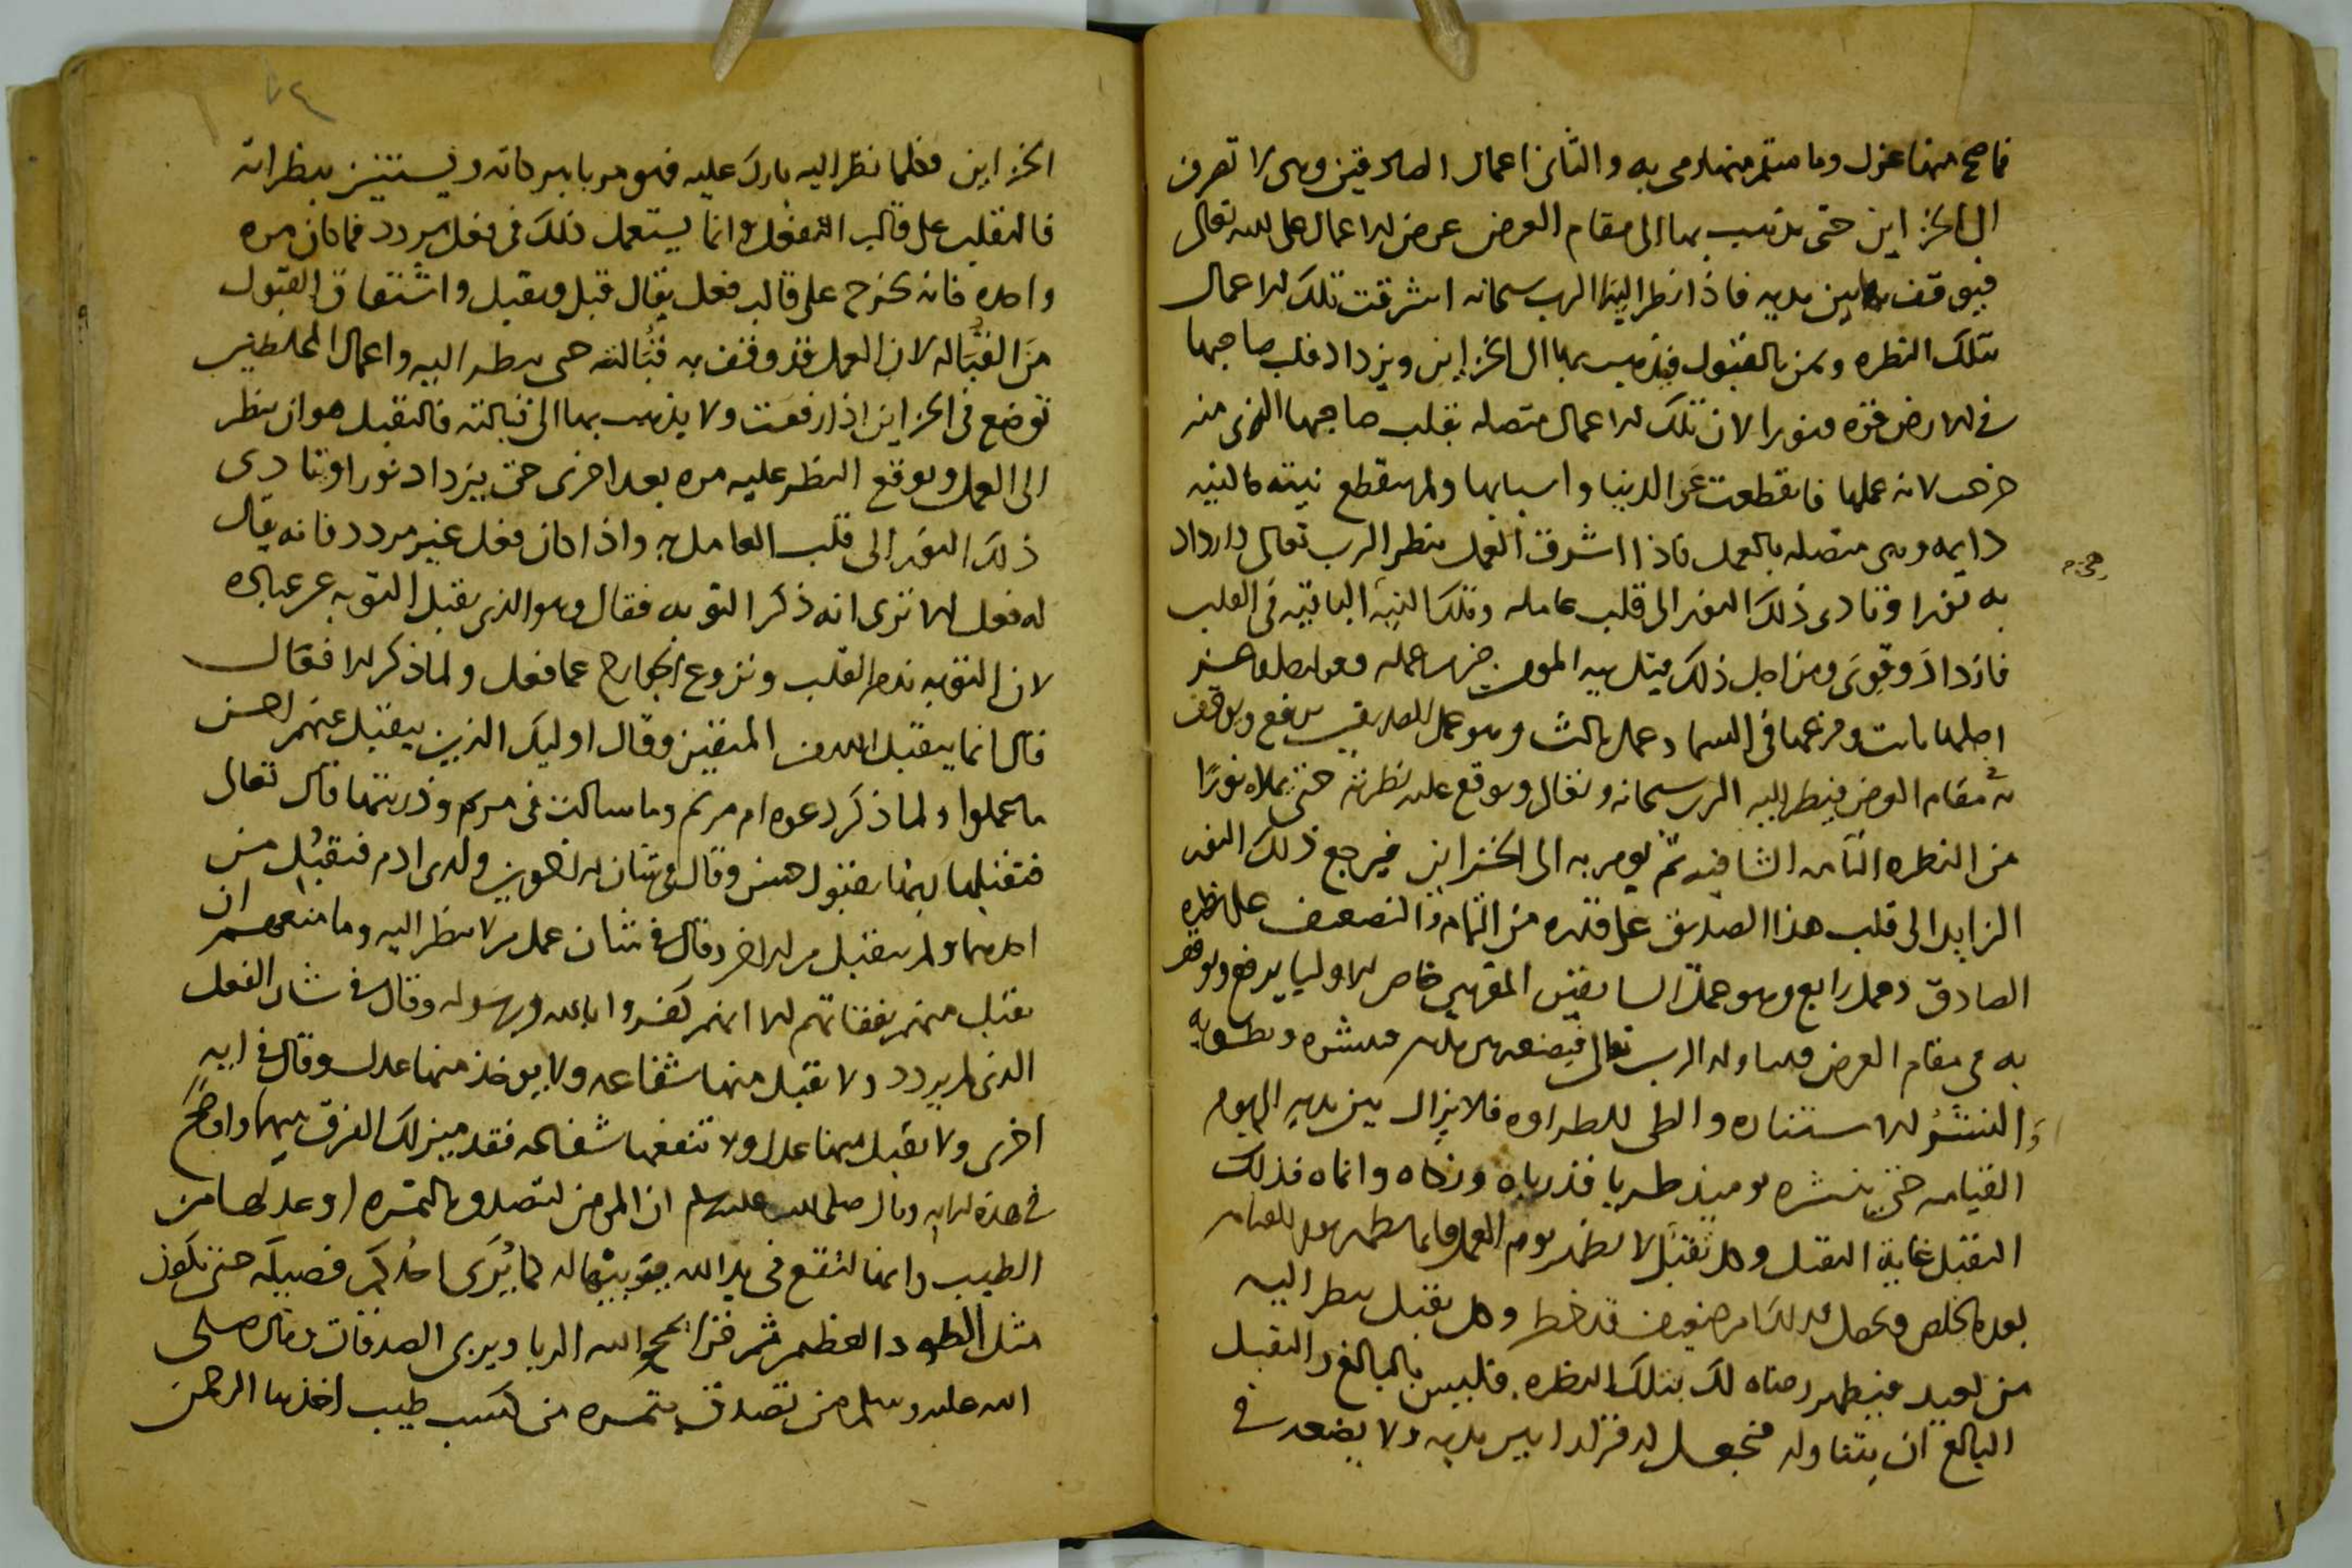 فما صح منها عزل وما سقم منها رمى به والثانى اعمال الصادقين وهى لا تصرف
الى الخزاين حتى يذهب بها الى مقام العرض عرض الاعمال على الله تعالى
فيوقف بها بين يديه فاذا نظر اليها الرب سبحانه اشرقت تلك الاعمال
بتلك النظره ويمن بالقبول فيذهب بها الى الخزاين ويزداد قلب صاحبها
فى الارض قوه ونورا لان تلك الاعمال متصله بقلب صاحبها الذى منه
خرجت لانه عملها فانقطعت عن الدنيا واسبابها ولم ينقطع نيته فالنيه
دايمه وهى متصله بالعمل فاذا اشرق العمل بنظر الرب تعالى وازداد
به نورا وتادى ذلك النور الى قلب عامله وتلك النيه الباقيه فى القلب
فازداد وقوى ومن اجل ذلك قيل نيه المومن خير من عمله
اصلها ثابت وفرعها فى السما وعمل ثالث وهو عمل الصديقين يرفع ويوقف
به مقام العرض فينظر اليه الرب سبحانه وتعالى ويوقع عليه نظرته حتى يملاه نورا
من النظره التامه الشافيه ثم يومر به الى الخزاين فيرجع ذلك النور
الزايد الى قلب هذا الصديق على قدره من التمام والتضعيف على نظره
الصادق وعمل رابع وهو عمل السابقين المقربين خاص الاوليا يرفع ويوقف
به فى مقام العرض فيتناوله الرب تعالى فيضعه بين يديه فينشره ويطويه
والنشر للاستناره والطى للطراوه فلا يزال بين يديه الى يوم
القيامه حتى ينشره يوميذ طريا قد رباه وزكاه وانماه فذلك
التقبل غاية التقبل وكل تقبل لا يظهر يوم العمل فانما يظهر يوم القيامه
بعمل مخلص وعمل كذلك من ضعيف قد خلط وكل يقبل ينظر اليه
من بعيد فيظهر رضاه لك بتلك النظره فليس بالبالغ والتقبل
البالغ ان يتناوله فيجعل له قرارا بين يديه ولا يضعه فى
الخزاين فكلما نظر اليه بارك عليه فهو مربا ببركاته ويستنير بنظراته
فالتقلب على قالب التفعل وانما يستعمل ذلك فى فعل مردد فما كان مره
واحده فانه يخرج على قالب فعل يقال قبل ويقبل واشتقاق القبول
من القباله لان العمل قد وقف به قبالته حتى ينظر اليه واعمال المخلطين
توضع فى الخزاين اذا رفعت ولا يذهب بها الى قبالته فالتقبل هو ان ينظر
الى العمل ويوقع النظر عليه مره بعد اخرى حتى يزداد نورا وتادى
ذلك النور الى قلب العامل به واذا كان فعل غير مردد فانه يقال
له فعل الا ترى انه ذكر التوبه فقال وهو الذى يقبل التوبه عن عباده
لان التوبه ندم القلب ونزوع الجوارح عما فعل ولما ذكر الافعال
قال انما يتقبل الله من المتقين وقال اوليك الذين يتقبل عنهم احسن
ما عملوا ولما ذكر دعوه ام مريم وما سالت فى مريم وذريتها قال تعالى
فتقبلها ربها بقبول حسن وقال فى شان الاخوين ولدى ادم فتقبل من
احدهما ولم يتقبل من الاخر وقال فى شان عمل من لا ينظر اليه وما منعهم ان
تقبل منهم نفقاتهم الا انهم كفروا بالله وبرسوله وقال فى شان الفعل
الذى لم يردد ولا يقبل منها شفاعه ولا يوخذ منها عدل وقال فى ايه
اخرى ولا يقبل منها عدل ولا تنفعها شفاعه فقد ميز لك الفرق بينهما واوضح
فى هذه الايه وقال صلى الله عليه وسلم ان المومن ليتصدق بالتمره او عدلها من
الطيب وانها لتقع فى يد الله فيربيها له كما يربى احدكم فصيله حتى تكون
مثل الطود العظيم ثم قرا يمحو الله الربا ويربى الصدقات وقال صلى
الله عليه وسلم من تصدق بتمره من كسب طيب اخذها الرحمن